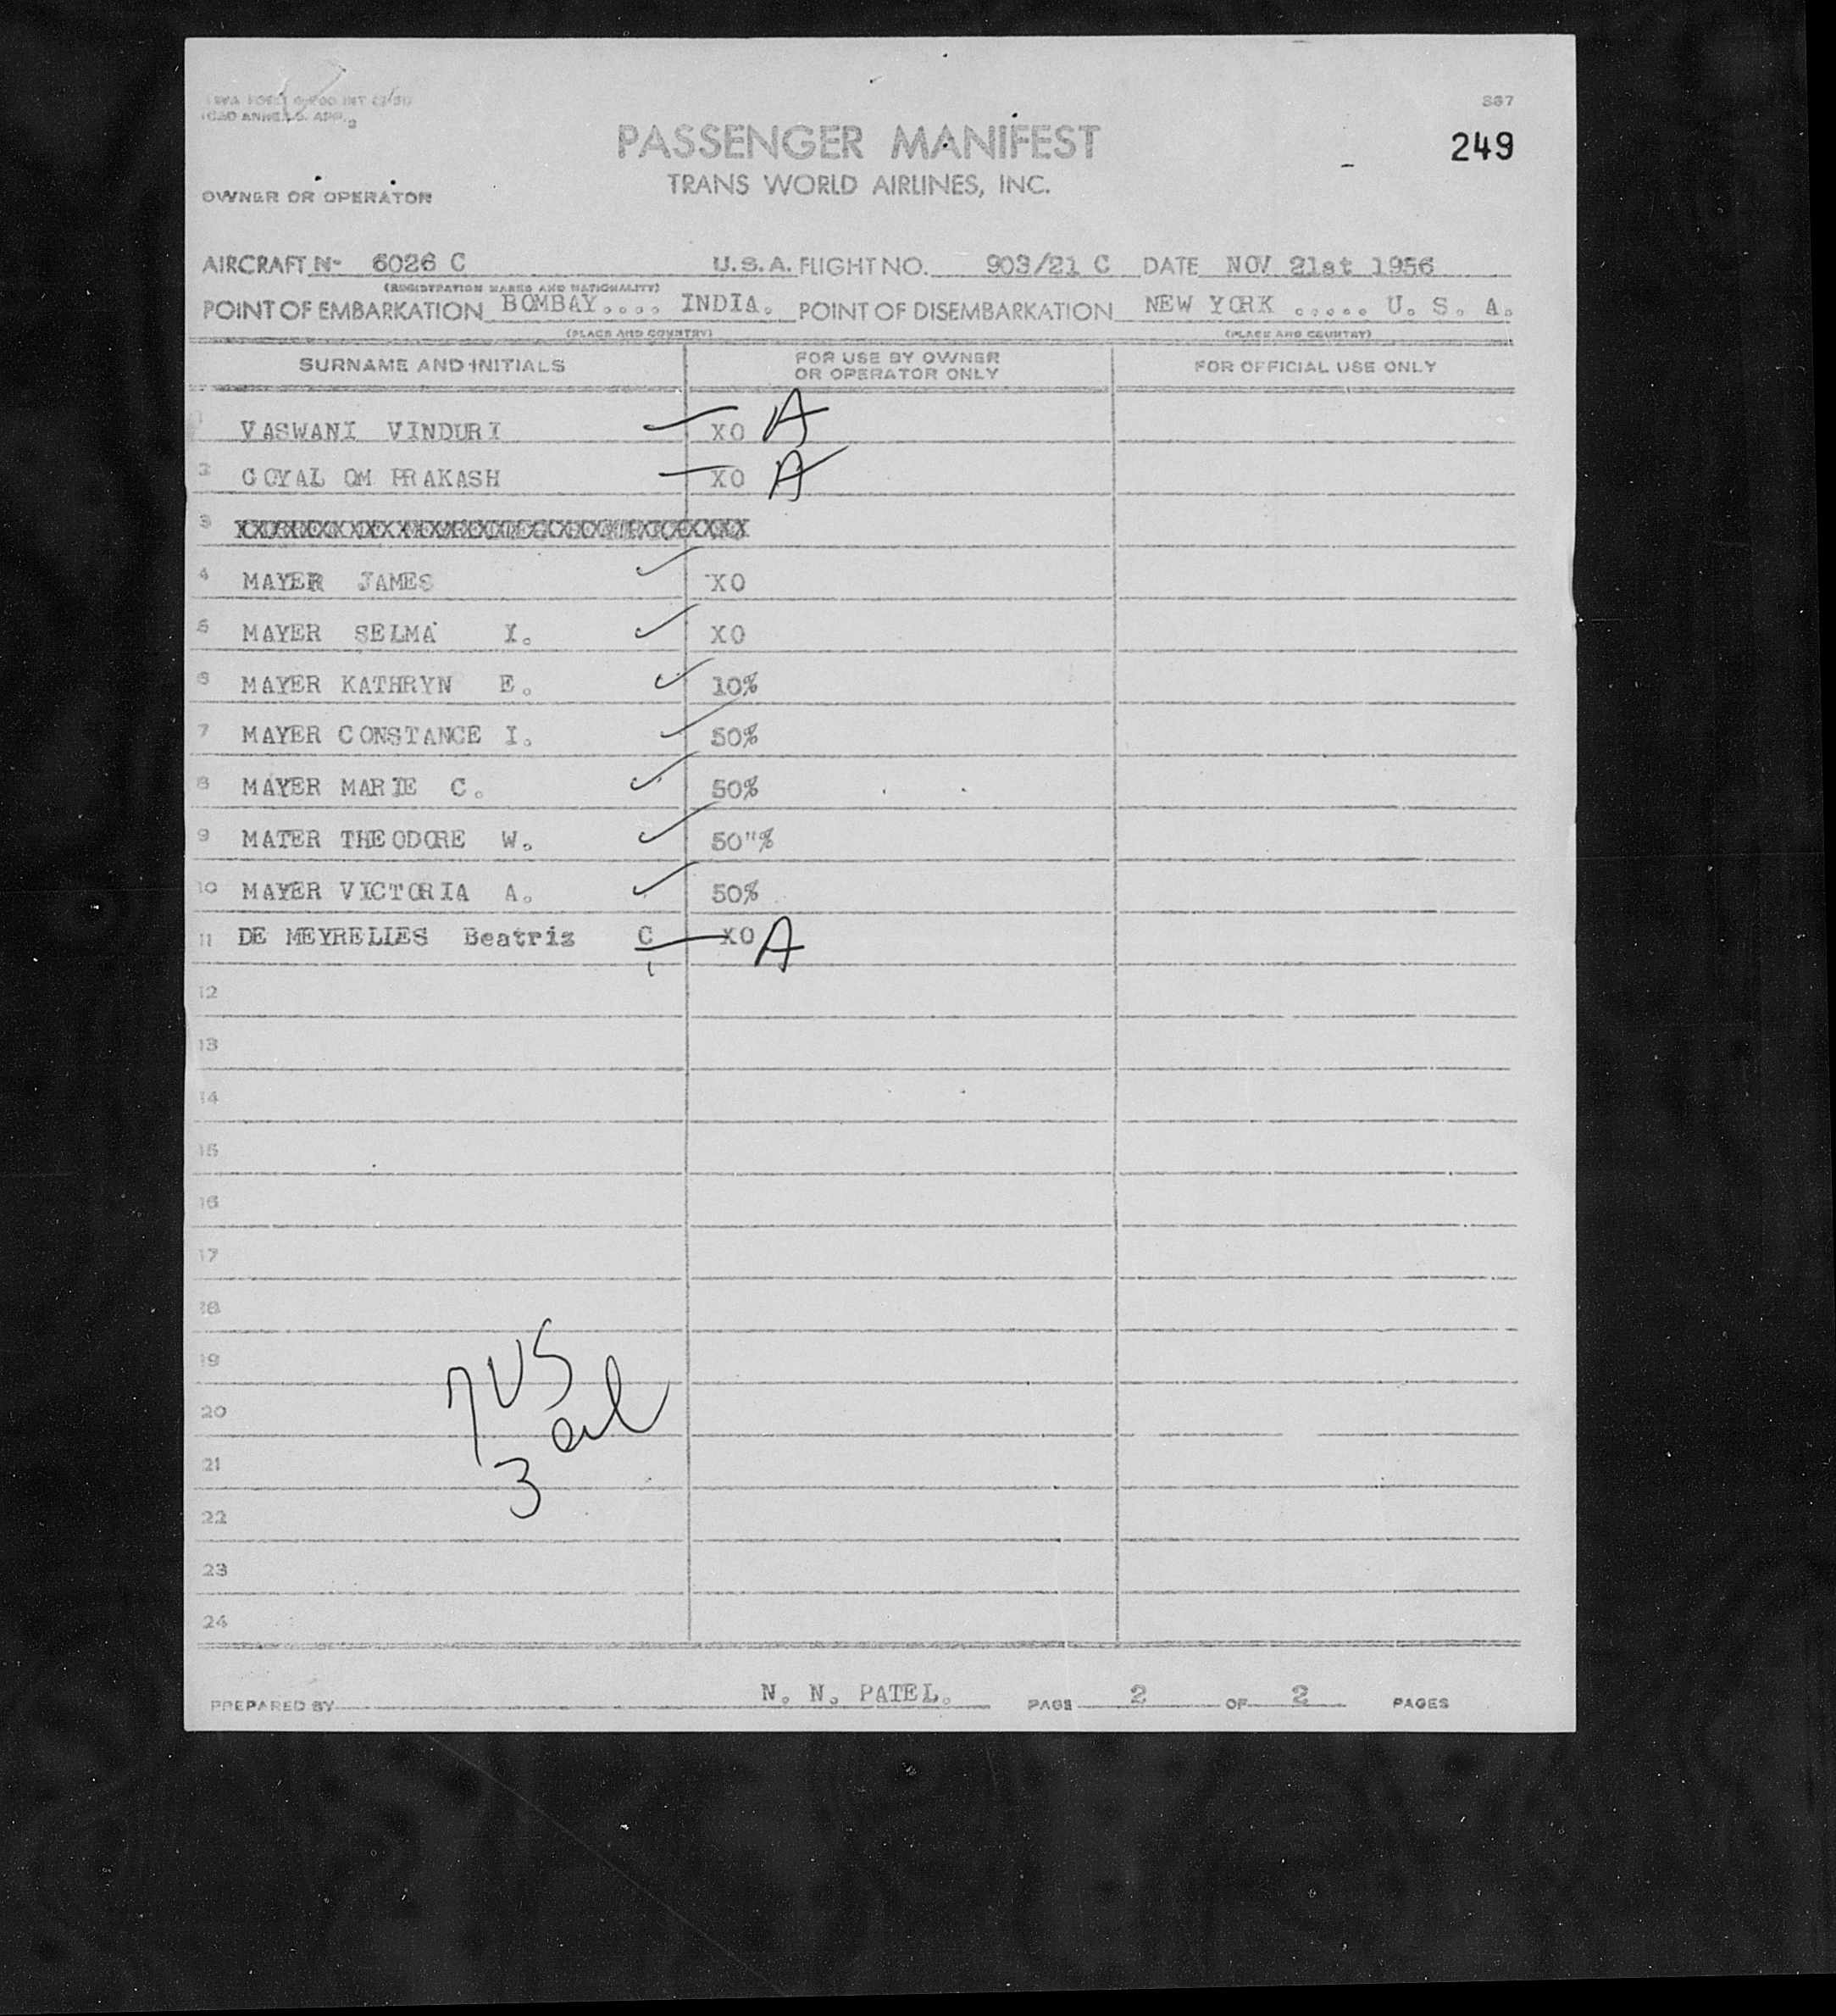 ICAO ANNEX 9. APP. 3
337
249
PASSENGER MANIFEST
TRANS WORLD AIRLINES, INC.
OWNER OR OPERATOR
AIRCRAFT N- 6026 C U.S.A. FLIGHT NO. 903/21 C DATE NOV 21st 1956
(REGISTRATION MARKS AND NATIONALITY)
POINT OF EMBARKATION BOMBAY.... INDIA. POINT OF DISEMBARKATION NEW YORK ..... U. S. A.
(PLACE AND COUNTRY) (PLACE AND COUNTRY)
SURNAME AND INITIALS FOR USE BY OWNER OR OPERATOR ONLY FOR OFFICIAL USE ONLY
VASWANI VINDURI XO A
2 GOYAL OM PRAKASH XO A
3
4 MAYER JAMES XO
5 MAYER SELMA I. XO
6 MAYER KATHRYN E. 10%
7 MAYER CONSTANCE I. 50%
8 MAYER MARIE C. 50%
9 MATER THEODORE W. 50"%
10 MAYER VICTORIA A. 50%
11 DE MEYRELLES Beatriz C XO A
12
13
14
15
16
17
18
19
20
21
22
23
24
7 US
3 al
PREPARED BY N. N. PATEL. PAGE 2 OF 2 PAGES